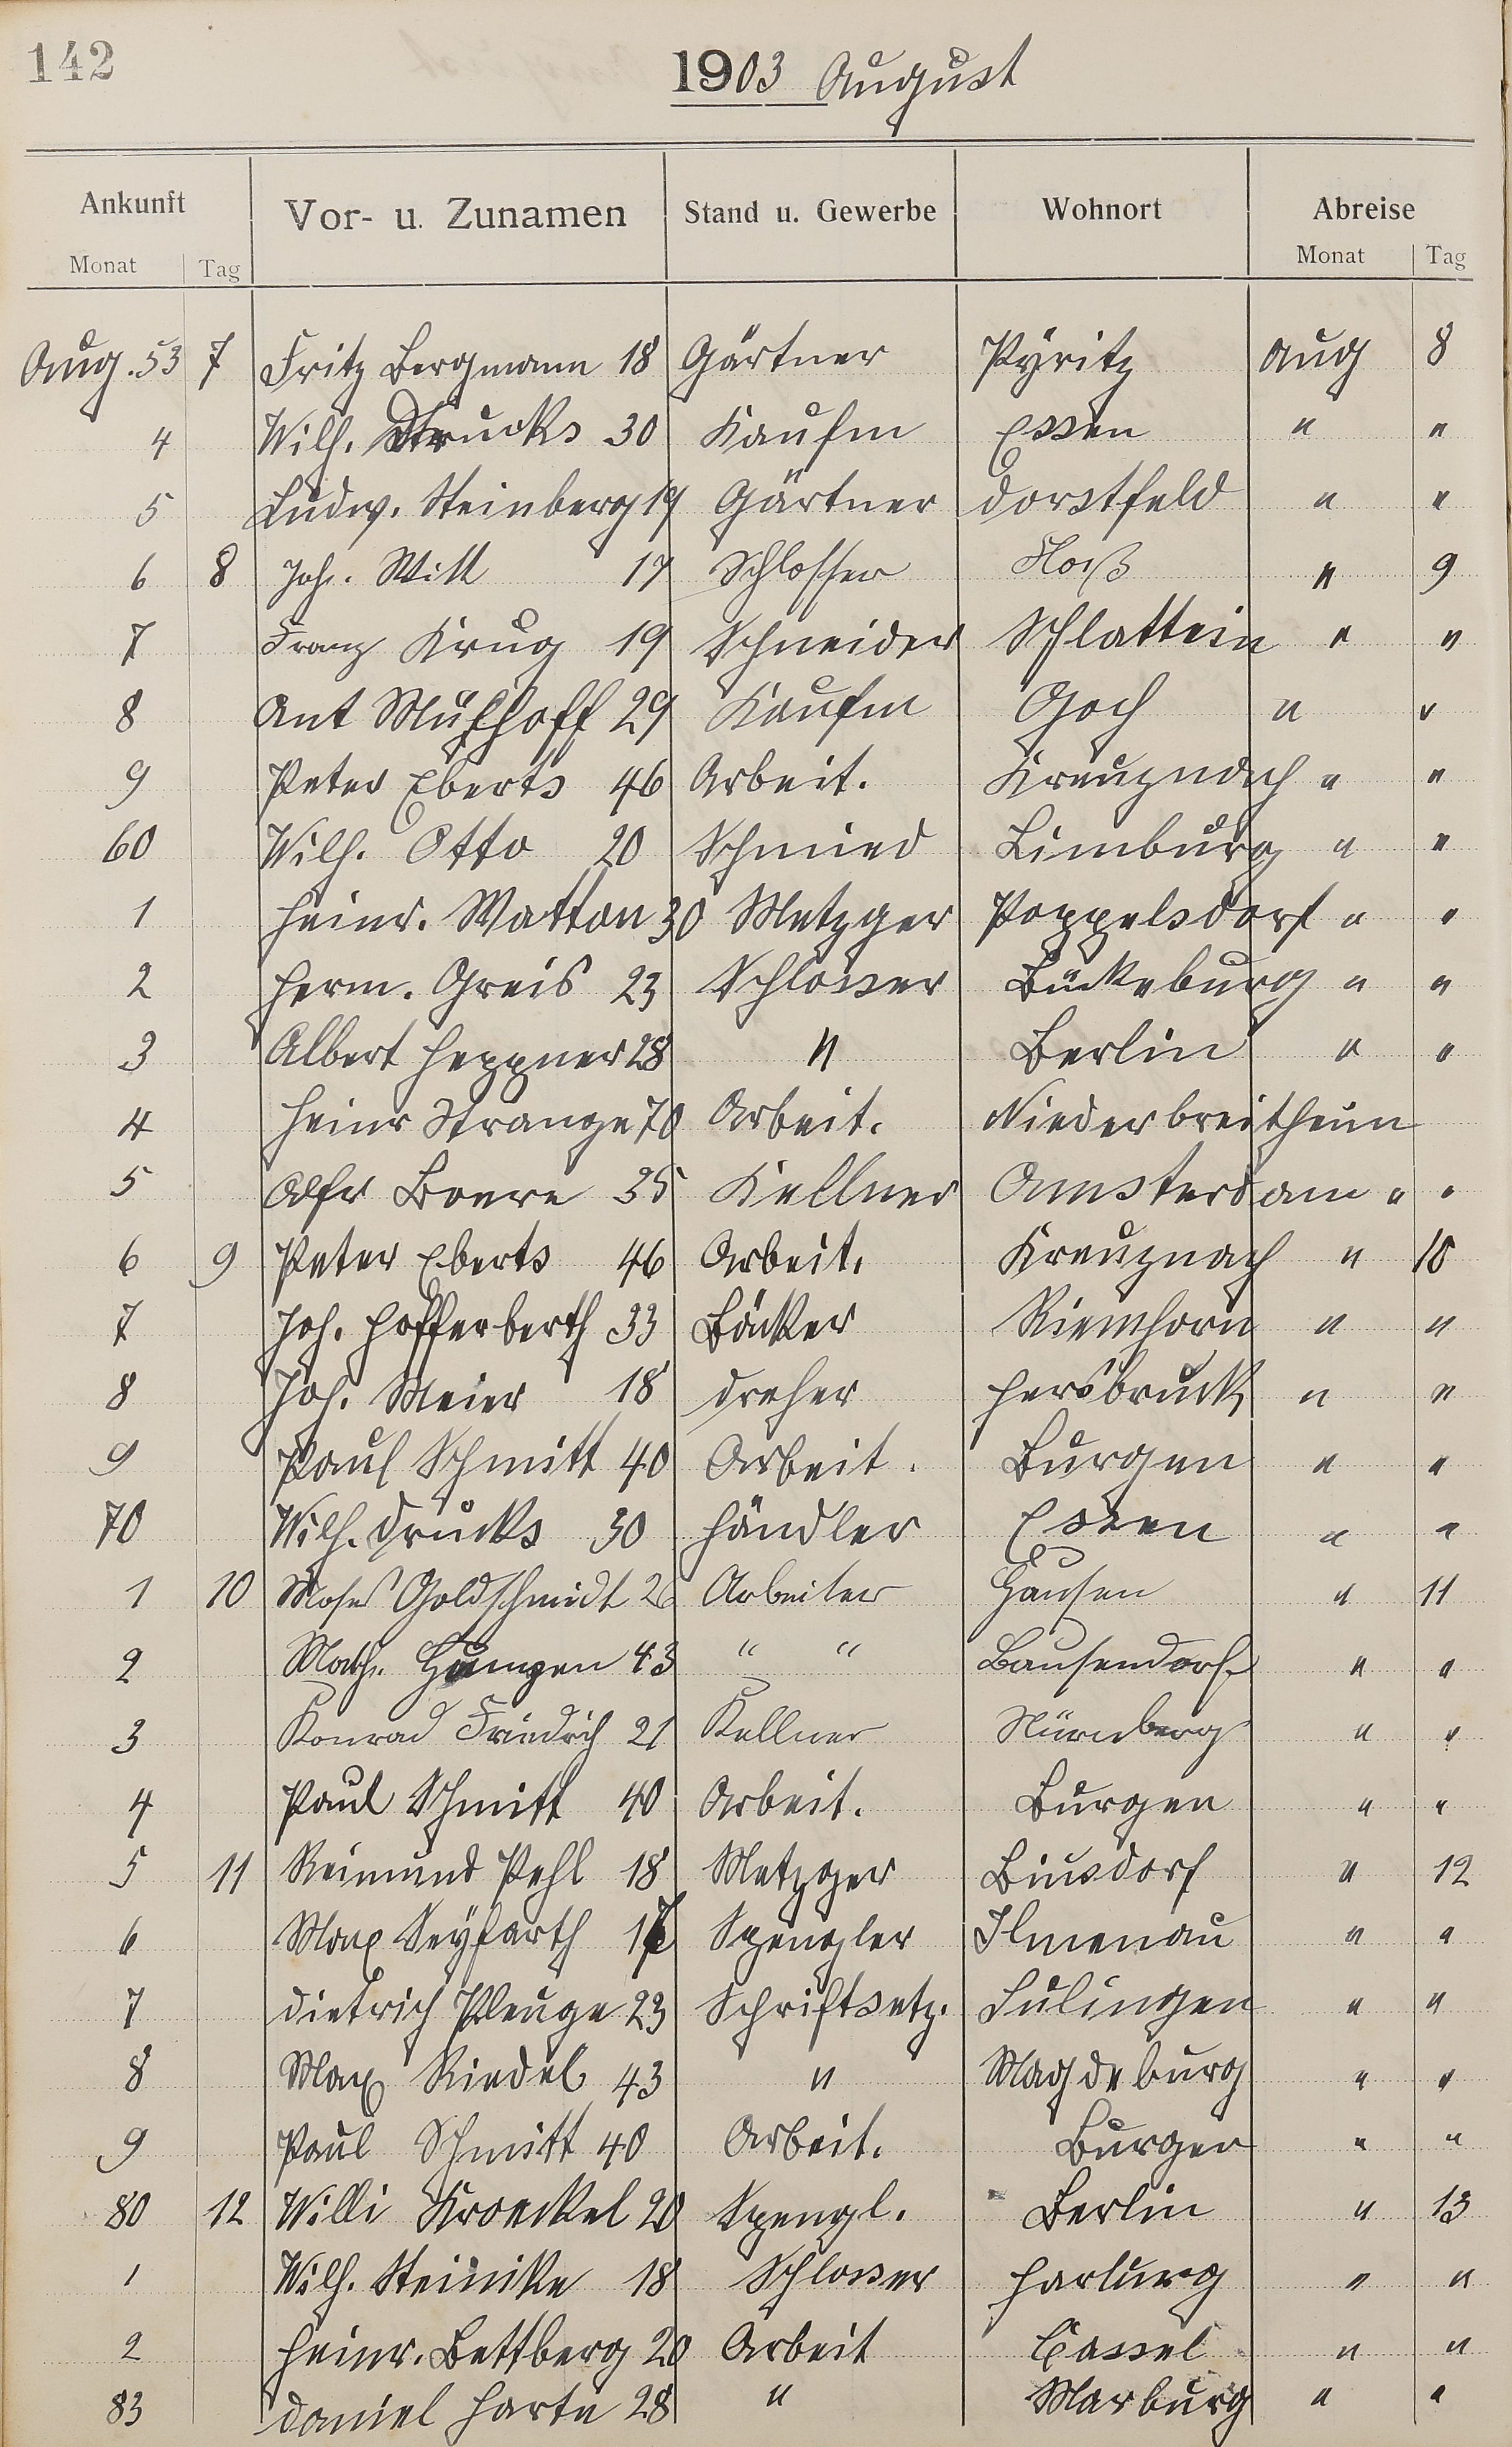 142
1903 August
Ankunft Vor- u. Zunamen Stand u. Gewerbe Wohnort Abreise
Monat Tag Monat Tag
Aug. 53 7 Fritz Bergmann 18 Gärtner Pyritz Aug 8
4 Wilh. Drucks 30 Kaufm Essen " "
5 Ludw. Steinberg 19 Gärtner Dorstfeld " "
6 8 Joh. Witt 17 Schlosser Floß " 9
7 Franz Krug 19 Schneider Schlattein " "
8 Ant Mühlhoff 29 Kaufm Goch " "
9 Peter Eberts 46 Arbeit. Kreuznach " "
60 Wilh. Otto 20 Schmied Limburg " "
1 Heinr. Watton 30 Metzger Poppelsdorf " "
2 Herm. Greis 23 Schlosser Bückeburg " "
3 Albert Heppner 28 " Berlin " "
4 Heinr Strange 70 Arbeit. Niederbreitheim
5 Alfr Boere 35 Kellner Amsterdam " "
6 9 Peter Eberts 46 Arbeit. Kreuznach " 10
7 Joh. Hofferberth 33 Bäcker Rimhorn " "
8 Joh. Meier 18 Dreher Hersbruck " "
9 Paul Schmitt 40 Arbeit. Burgen " "
70 Wilh. Drucks 30 Händler Essen " "
1 10 Moses Goldschmidt 26 Arbeiter Hausen " 11
2 Math. 43 " " Bausendorf " "
3 Konrad Friedrich 21 Kellner Nürnberg " "
4 Paul Schmitt 40 Arbeit. Burgen " "
5 11 Reimund Pehl 18 Metzger Binsdorf " 12
6 Max Seyfarth 17 Spengler Ilmenau " "
7 Dietrich Pleuge 23 Schriftsetz. Sulingen " "
8 Max Riedel 43 " Magdeburg " "
9 Paul Schmitt 40 Arbeit. Burgen " "
80 12 Willi Kroeckel 20 Spengl. Berlin " 13
1 Wilh. Steinike 18 Schlosser Harburg " "
2 Heinr. Bettberg 20 Arbeit Cassel " "
83 Daniel Harte 28 " Marburg " "